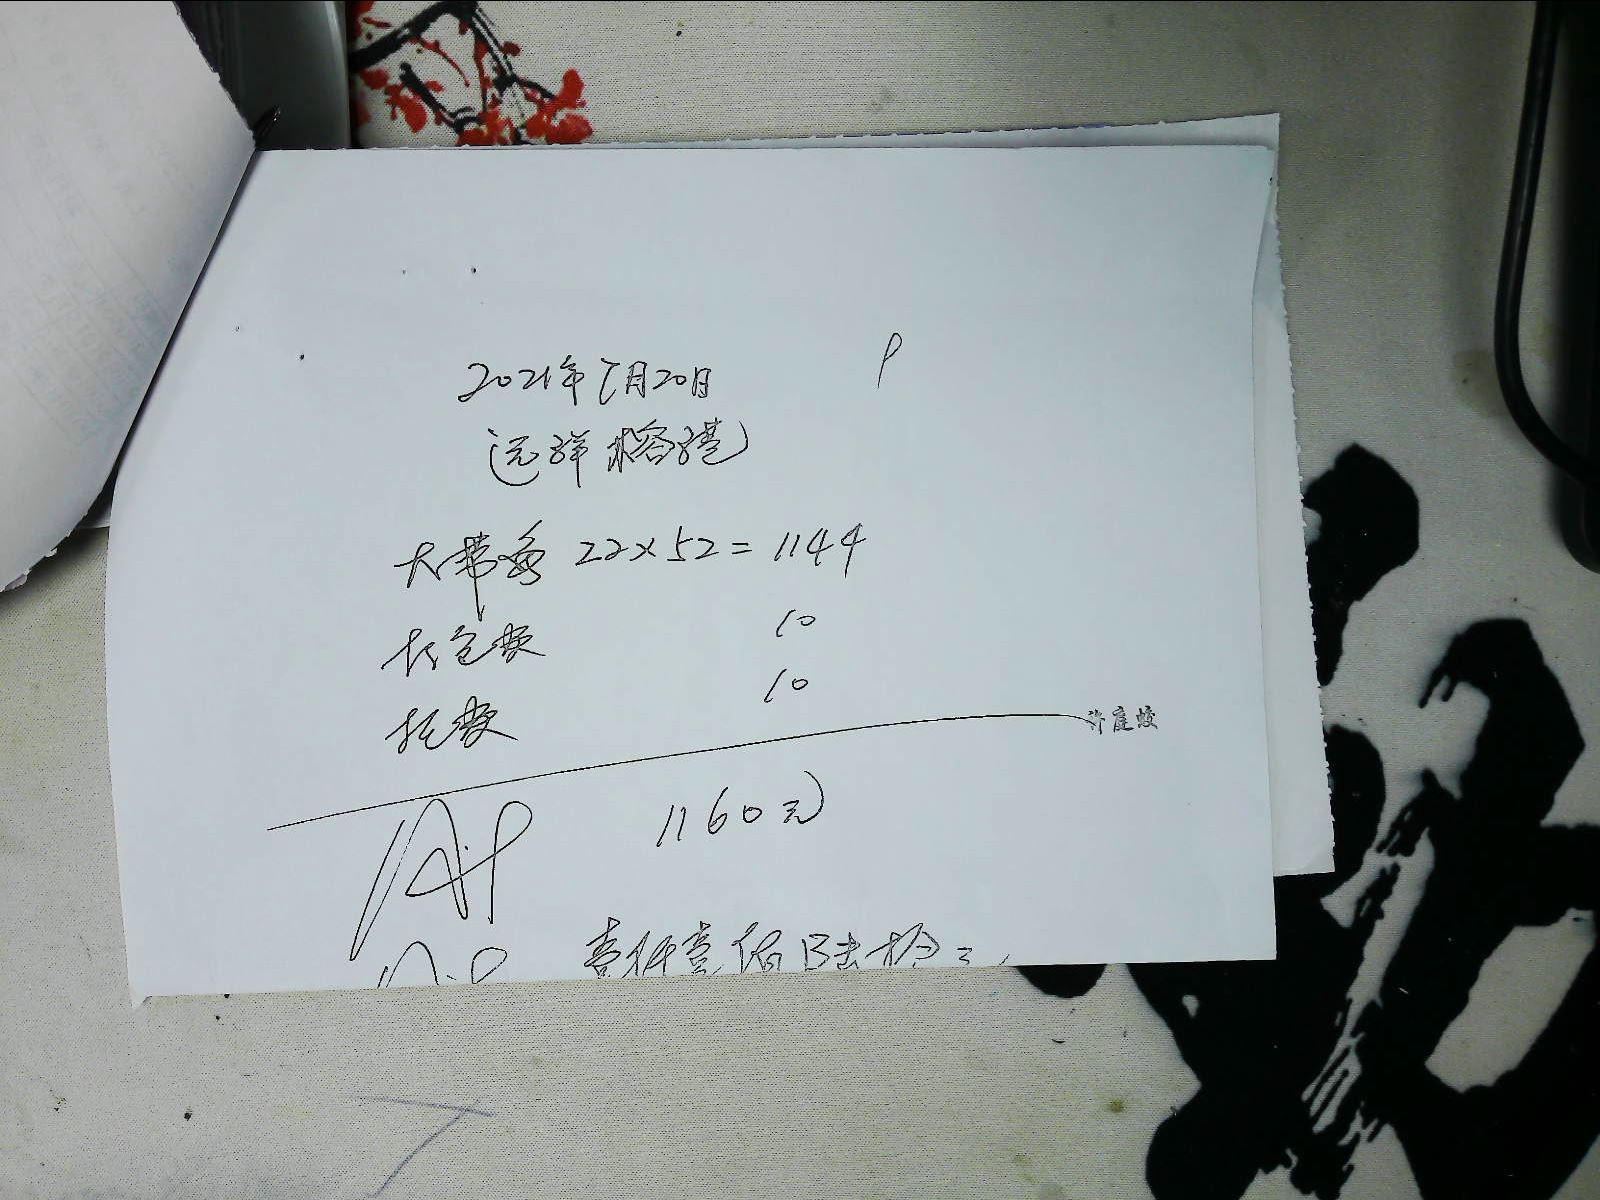 2021年7月20日
远洋榕
大带
22×52=1144
打包费 10
托费 10
许庭蛟
1160元
壹仟壹佰陆拾元